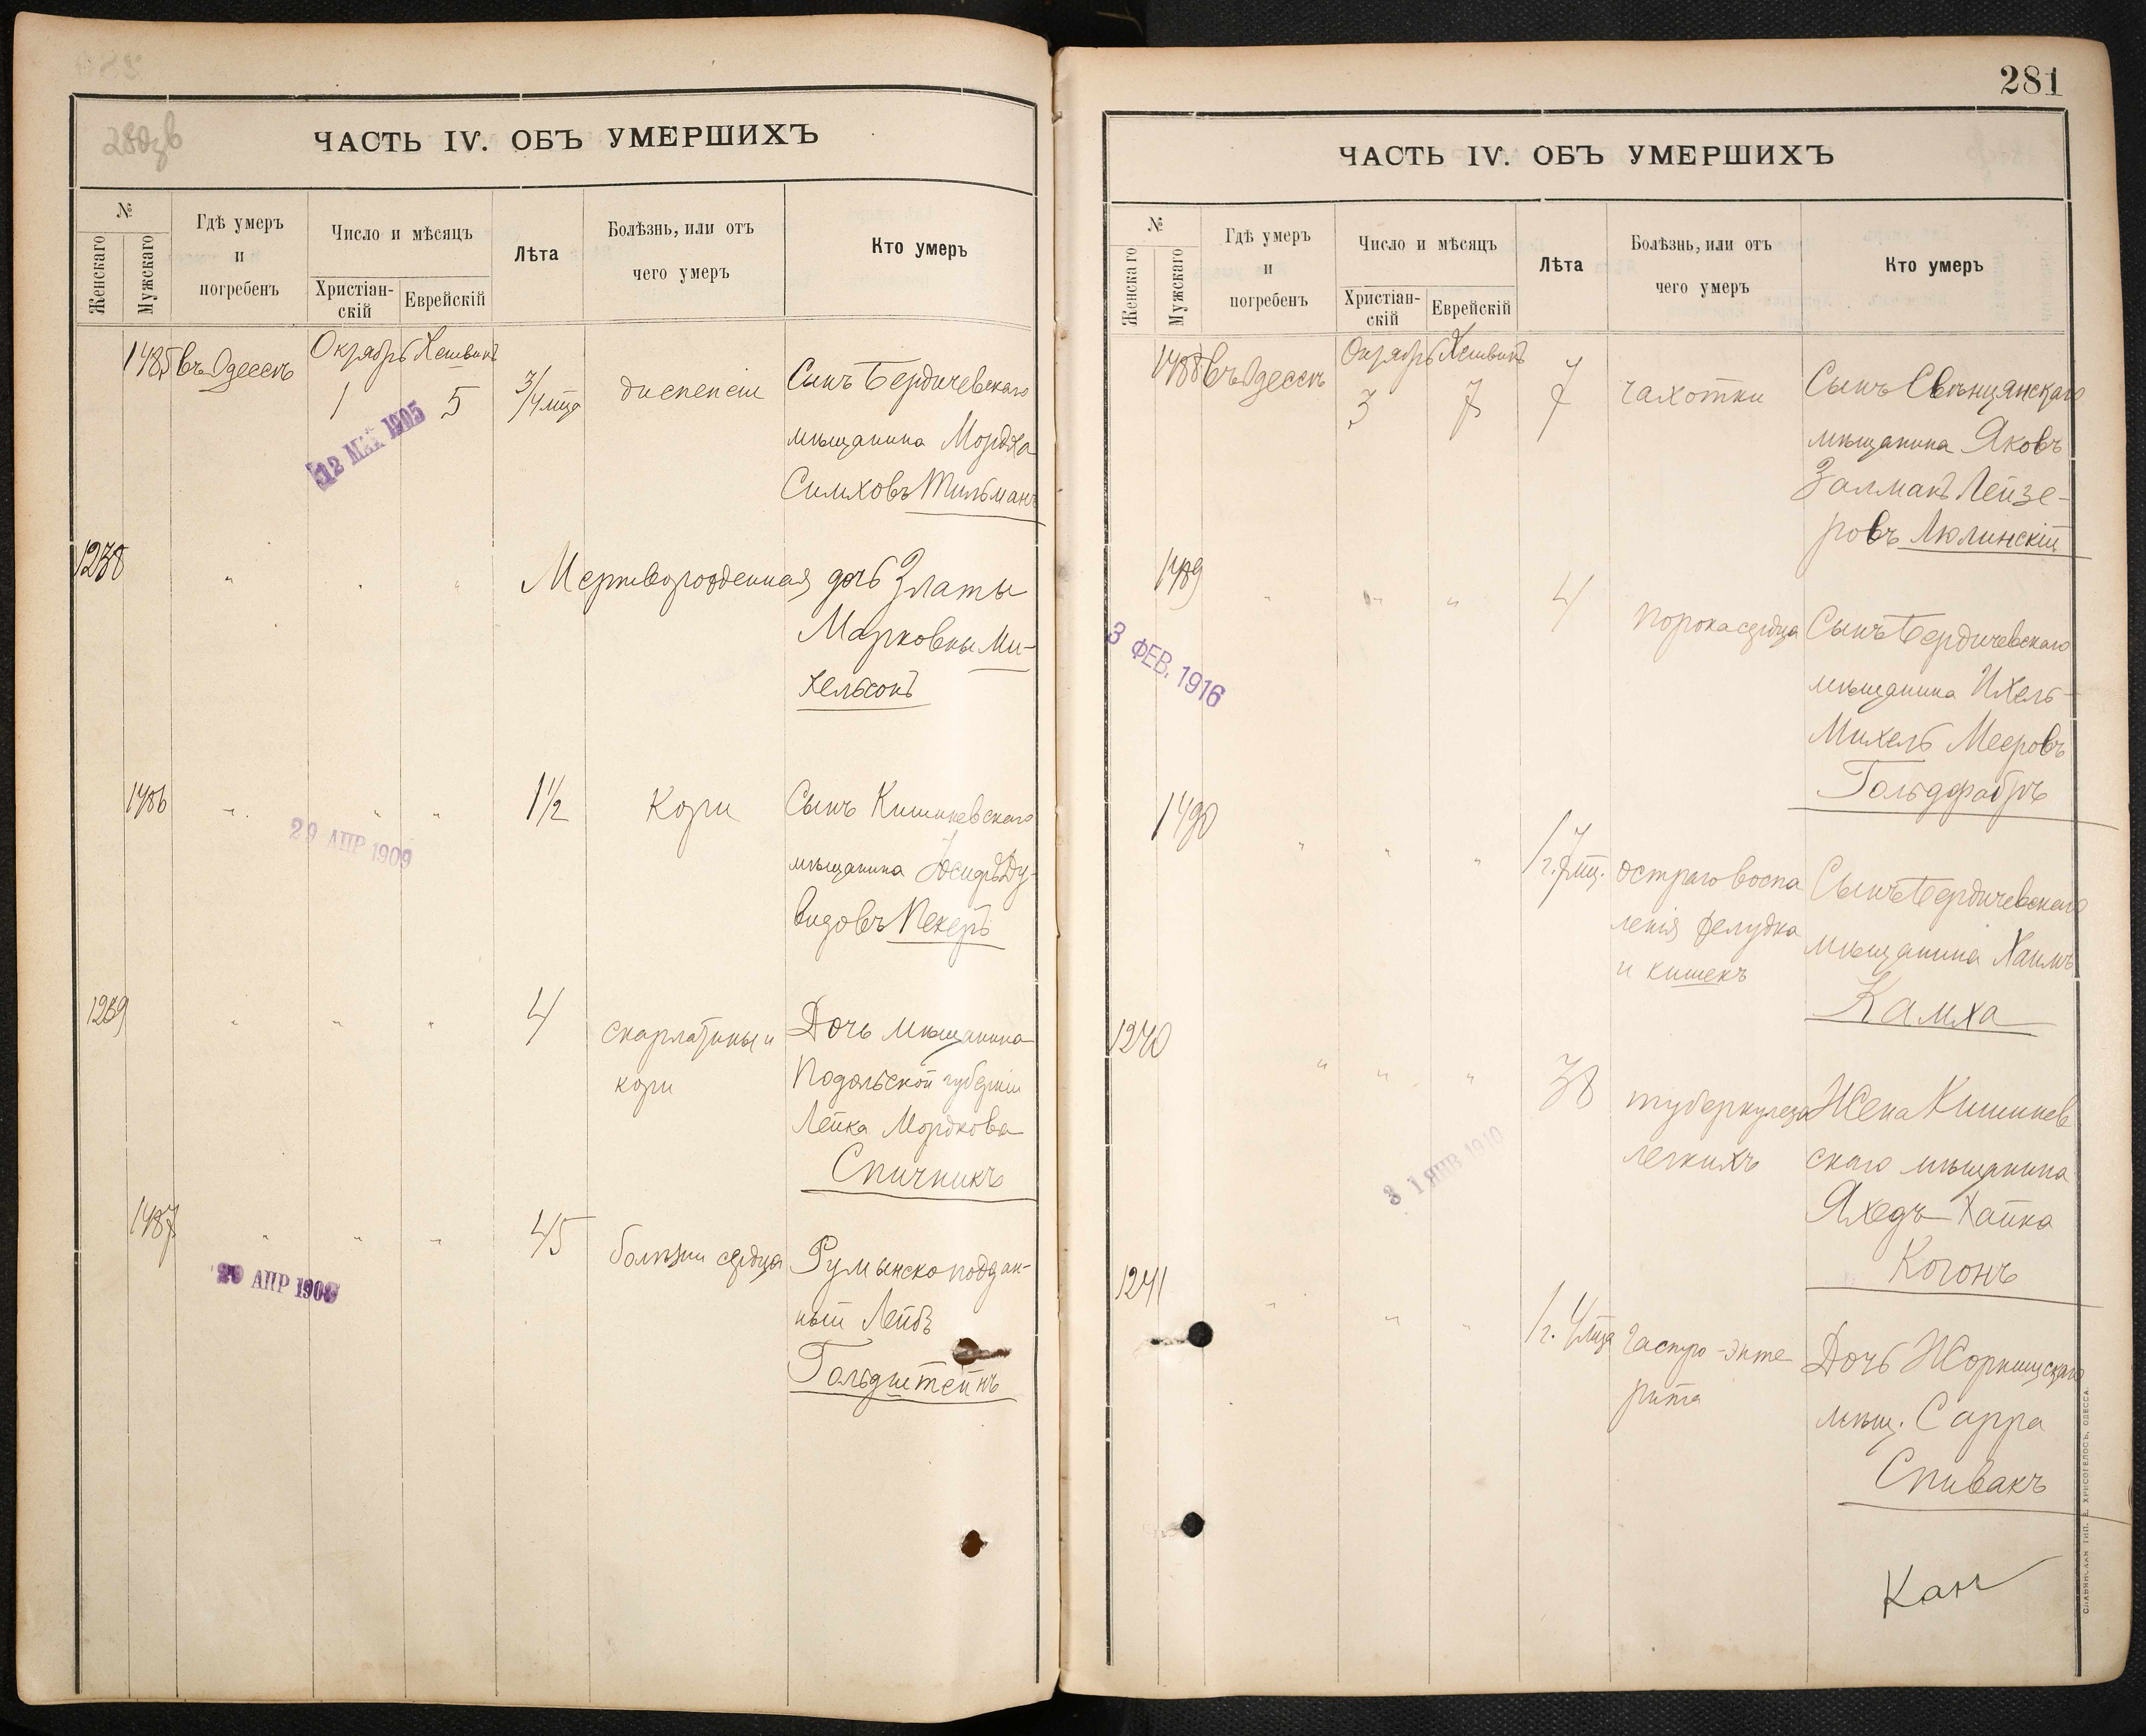 ЧАСТЬ IV. ОБЪ УМЕРШИХЪ
№
Женскаго
Мужскаго
Гдѣ умеръ
и
погребенъ
Число и мѣсяцъ
Христіан-
скій
Еврейскій
Лѣта
Болѣзнь, или отъ
чего умеръ
Кто умеръ
1485 въ Одессѣ Октябрь Хешвинъ
1 5 3/4 мца диспепсіи Сынъ Бердичевскаго
мѣщанина Мордха
Симховъ Тильманъ
12 МАЙ 1905
1238 " " " Мертворожденная дочь Златы
Марковны Ми-
хельсонъ
1486 " " " 1 1/2 Кори Сынъ Кишиневскаго
мѣщанина Іосифъ Ду-
видовъ Пекеръ
29 АПР 1909
1239 " " " 4 скарлатины и Дочь мѣщанина
кори Подольской губерніи
Лейка Мордкова
Спичникъ
1487 " " " 45 болѣзни сердца Румынскоподдан-
ный Лейбъ
Гольдштейнъ
29 АПР 1908
281
ЧАСТЬ IV. ОБЪ УМЕРШИХЪ
№
Женскаго
Мужскаго
Гдѣ умеръ
и
погребенъ
Число и мѣсяцъ
Христіан-
скій
Еврейскій
Лѣта
Болѣзнь, или отъ
чего умеръ
Кто умеръ
1488 въ Одессѣ Октябрь Хешвинъ
3 7 7 чахотки Сынъ Свѣнцянскаго
мѣщанина Яковъ
Залманъ Лейзе-
ровъ Люлинскій
1489 " " " 4 порока сердца Сынъ Бердичевскаго
мѣщанина Ихель-
Михель Мееровъ
Гольдфарбъ
3 ФЕВ. 1916
1490 " " " 1 г. 7 мц. остраго воспа Сынъ Бердичевскаго
ленія желудка мѣщанина Хаимъ
и кишекъ Камха
1240 " " " 38 туберкулеза Жена Кишинев
легкихъ скаго мѣщанина
Яхедъ-Хайка
Когонъ
31 ЯНВ 1910
1241 " " " 1 г. 4 мца Гастро-энте Дочь Жорнищскаго
рита мѣщ. Сарра
Спивакъ
СЛАВЯНСКАЯ ТИП. Е. ХРИСОГЕЛОСЪ, ОДЕССА.